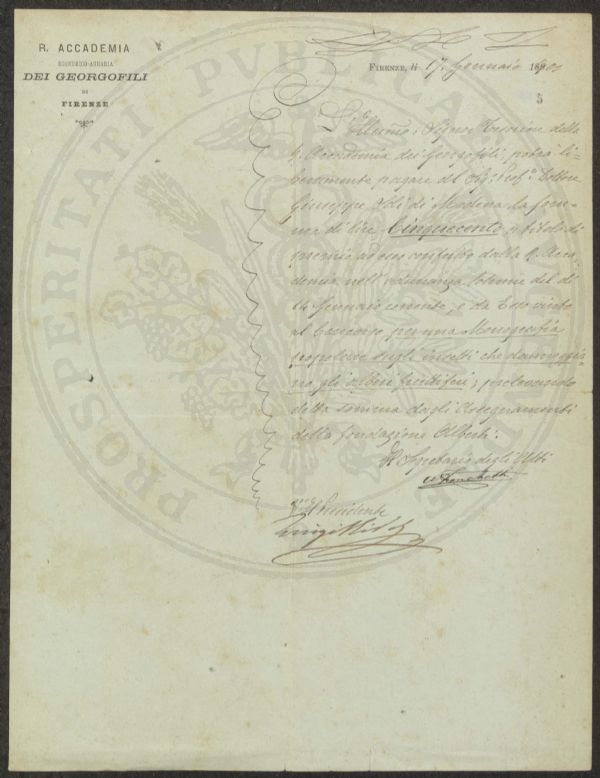 R. ACCADEMIA
ECONOMICO-AGRARIA
DEI GEORGOFILI
DI
FIRENZE
FIRENZE, li 17. Gennaio
5
Signor Tesoriere della
R. Accademia dei Georgofili, potrà li-
beramente pagare al Sig: Prof: Dottore
Giuseppe di Modena la som-
ma di lire Cinquecento a titolo di
premio conferito dalla R. Acca-
demia nell'adunanza solenne del dì
14 Gennaio corrente, e da Esso vinto
al Concorso per una Monografia
popolare sugli insetti che danneggia-
no gli alberi fruttiferi; prelevando
detta somma dagli Assegnamenti
della fondazione Alberti.
Il Segretario degli Atti
Il Presidente
Luigi
PROSPERITATI PUBLICAE